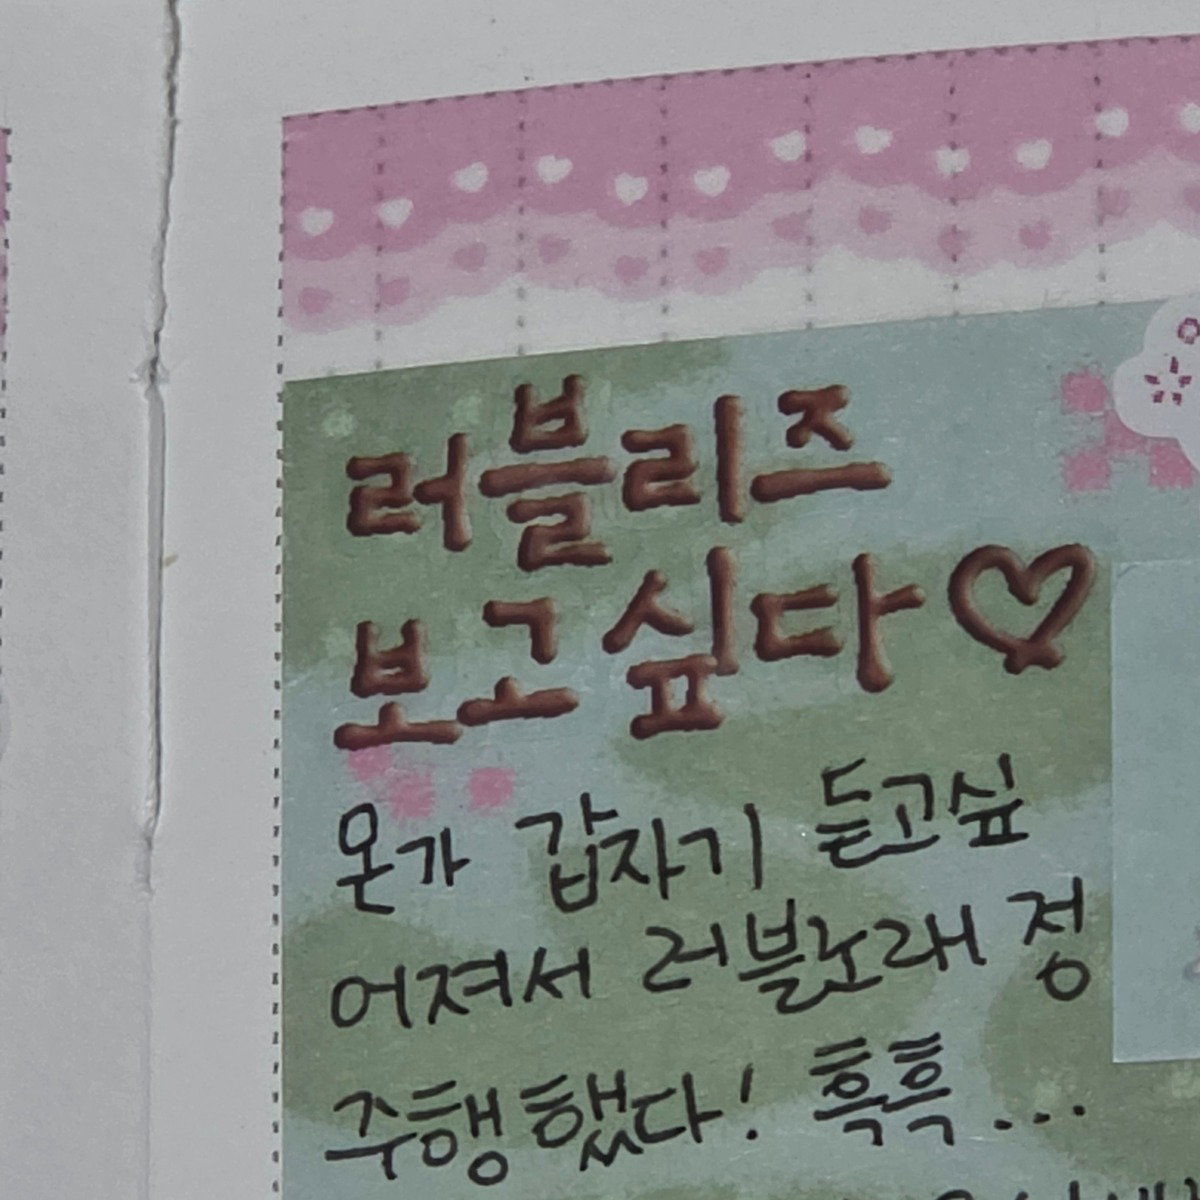 러블리즈
보고싶다♡
온가 갑자기 듣고싶
어져서 러블노래 정
주행했다! 흑흑...